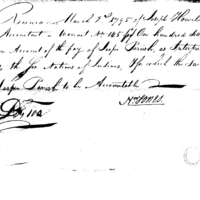 Received March 3d 1795 of Joseph Howell
Accountant a Warrant No. 185 for One hundred
on Account of the pay of Jasper Parrish, as Interpreter
to the Six Nations of Indians, for which the
Jasper Parrish to be Accountable
No. Jones